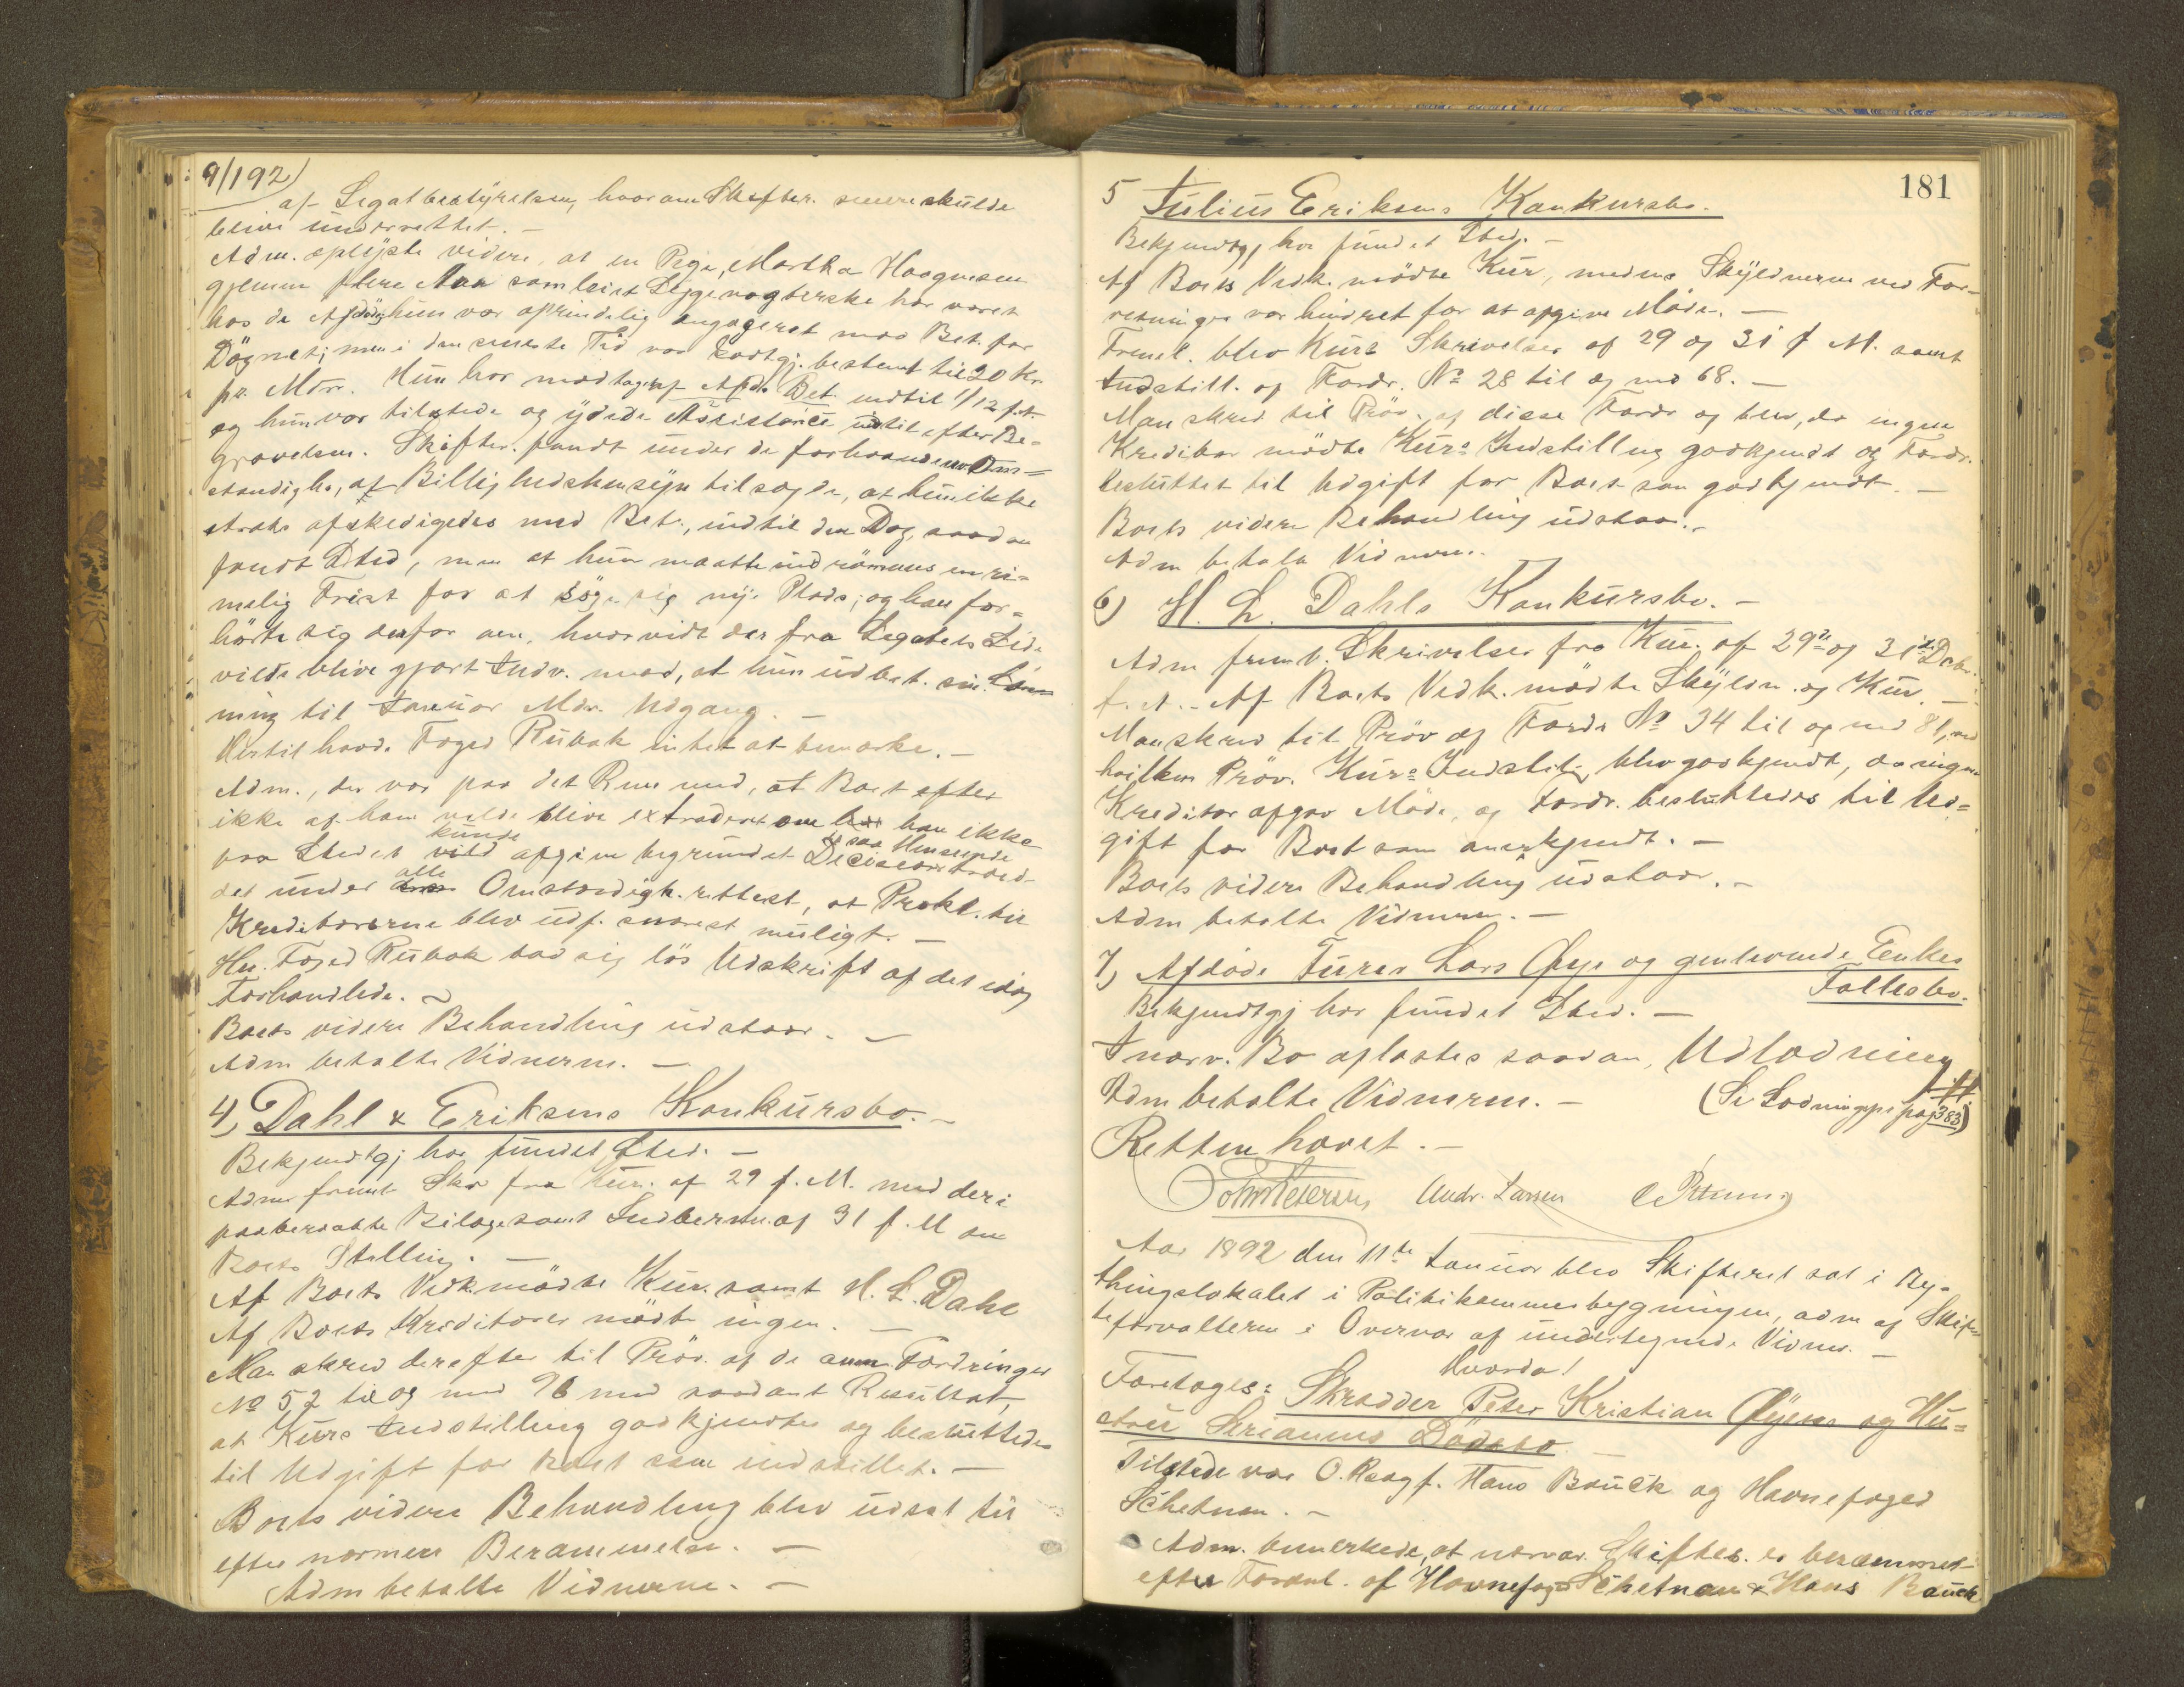 9/1 92)
af Legatbestyrelsen, hvorom Skifter. senere skulde
blive underrettet. –
Adm. oplyste videre, at en Pige, Martha Haagensen
gjennem flere Aar som leiet Sygevogterske har været
hos de Afdøde; hun var oprindelig engageret mod Bet. for
Døgnet; men i den seneste Tid var Kostgj. bestemt til 20 Kr.
pr. Mdr. Hun har modtaget af Afdø. Bet. indtil 1/12 f. A.
og hun var tilstede og ydede Assistance indtil efter Be-
gravelsen. Skifter. fandt under de forhaandenv. Om-
stændigh., at Billighedshensyn tilsagde, at hun ikke
strax afskedigedes med Bet., indtil den Dag, saadan
fandt Sted, men at hun maatte indrømmes en ri-
melig Frist for at søge sig ny Plads; og han for-
hørte sig derfor om, hvorvidt der fra Legatets Side
vilde blive gjort Indv. mod, at hun udbet. sin Løn-
ning til Januar Mdr. Udgang. –
Hertil havde Foged Rubak intet at bemærke. –
Adm., der var paa det Rene med, at Boet efter
ikke af ham vilde blive extraderet om han ikke
kunde i saa Henseende
paa Stedet vild afgive begrundet Decision troed-
alle
det under Omstændigh. rettest, at Prokl. til
Kreditorerne blev udf. snarest muligt. –
Hr. Foged Rubak bad sig løs Udskrift af det idag
Forhandlede. –
Boets videre Behandling udstaar. –
Adm betalte Vidnerne. –
4) Dahl & Eriksens Konkursbo. –
Bekjendtgj har fundet Sted. –
Adm freml Skr fra Kur. af 29 f. M. med deri
paaberaabte Bilage samt Indberetn. af 31 f. M om
Boets Stilling. –
Af Boets Vedk. mødte Kur. samt H. L. Dahl
Af Boets Kreditorer mødte ingen. –
Man skred derefter til Prøv. af de anm. Fordringer
No 52 til og med 96 med saadant Resultat,
at Kurs Indstilling godkjendtes og besluttedes
til Udgift for Boet som indstillet. –
Boets videre Behandling blev udsat til
efter nærmere Berammelse. –
Adm betalte Vidnerne. –
181
5 Julius Eriksens Konkursbo.
Bekjendtgj har fundet Sted. –
Af Boets Vedk. mødte Kur, medens Skyldneren ved For-
retninger var hindret for at afgive Møde. –
Freml. blev Kurs Skrivelser af 29 og 31 f M. samt
Indstill. af Fordr. No 28 til og med 68. –
Man skred til Prøv. af disse Fordr og blev, da ingen
Kreditor mødte Kurs Indstilling godkjendt og Fordr.
besluttet til Udgift for Boet som godkjendt. –
Boets videre Behandling udstaar. –
Adm betalte Vidnerne.
6) H. L. Dahls Konkursbo. –
Adm freml. Skrivelser fra Kur. af 29de og 31te Debr.
f. A. – Af Boets Vedk. mødte Skyldn. og Kur. –
Man skred til Prøv af Fordr No 34 til og med 81, ved
hvilken Prøv. Kurs Indstill. blev godkjendt, da ingen
Kreditor afgav Møde, og Fordr. besluttedes til Ud-
gift for Boet som anerkjendt. –
Boets videre Behandling udstaar. –
Adm betalte Vidnerne. –
7) Afdøde Furer Lars Øye og gjenlevende Enkes
Fællesbo.
Bekjendtgj har fundet Sted. –
I nærv. Bo afluttes saadan, Udlodning
Adm betalte Vidnerne. – (Se Lodningspr pag 383)
Retten hævet. –
Andr. Larsen
Aar 1892 den 11te Januar blev Skifteret sat i By-
thingslokalet i Politikammerbygningen, adm af Skif-
teforvalteren i Overvær af undertegnede Vidner. –
Hvorda!
Foretages: Skrædder Peter Kristian Øyens og Hu-
stru Serianna's Dødsbo. –
Tilstede var O. Ragf. Hans Bauck og Havnefoged
Schetnan. –
Adm. bemerkede, at nærvær. Skifter. er berammet
efter Foranl. af Havnefoged Schetnan & Hans Bauck